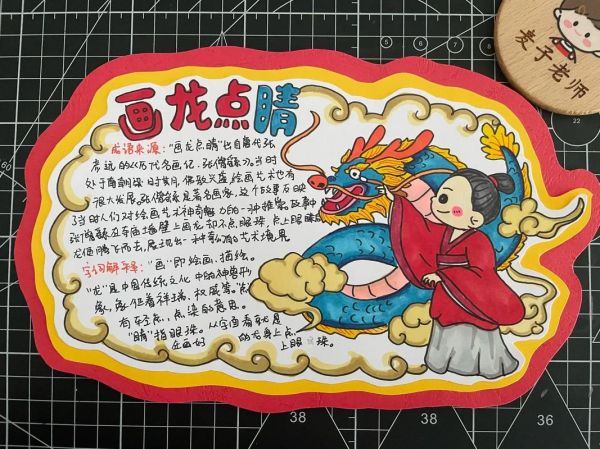 画龙点睛
成语来源："画龙点睛"出自唐代张
彦远的《历代名画记·张僧繇》。当时
处于南朝梁时期，佛教兴盛，绘画艺术也有
很大发展，张僧繇是著名画家，这个故事反映
了当时人们对绘画艺术神奇魅力的一种推崇，故事中
张僧繇在寺庙墙壁上画龙却不点眼珠，点上眼睛后
龙便腾飞而去，展现出一种高的艺术境界
字词解释："画"即绘画、描绘。
"龙"是中国传统文化中的神兽形
象，象征着祥瑞、权威等。"点"
有轻点、点染的意思。
"睛"指眼珠。从字面看就是
在画好的龙身上点上眼珠。
麦子老师
60
5
6
7
8
22
38
38
36